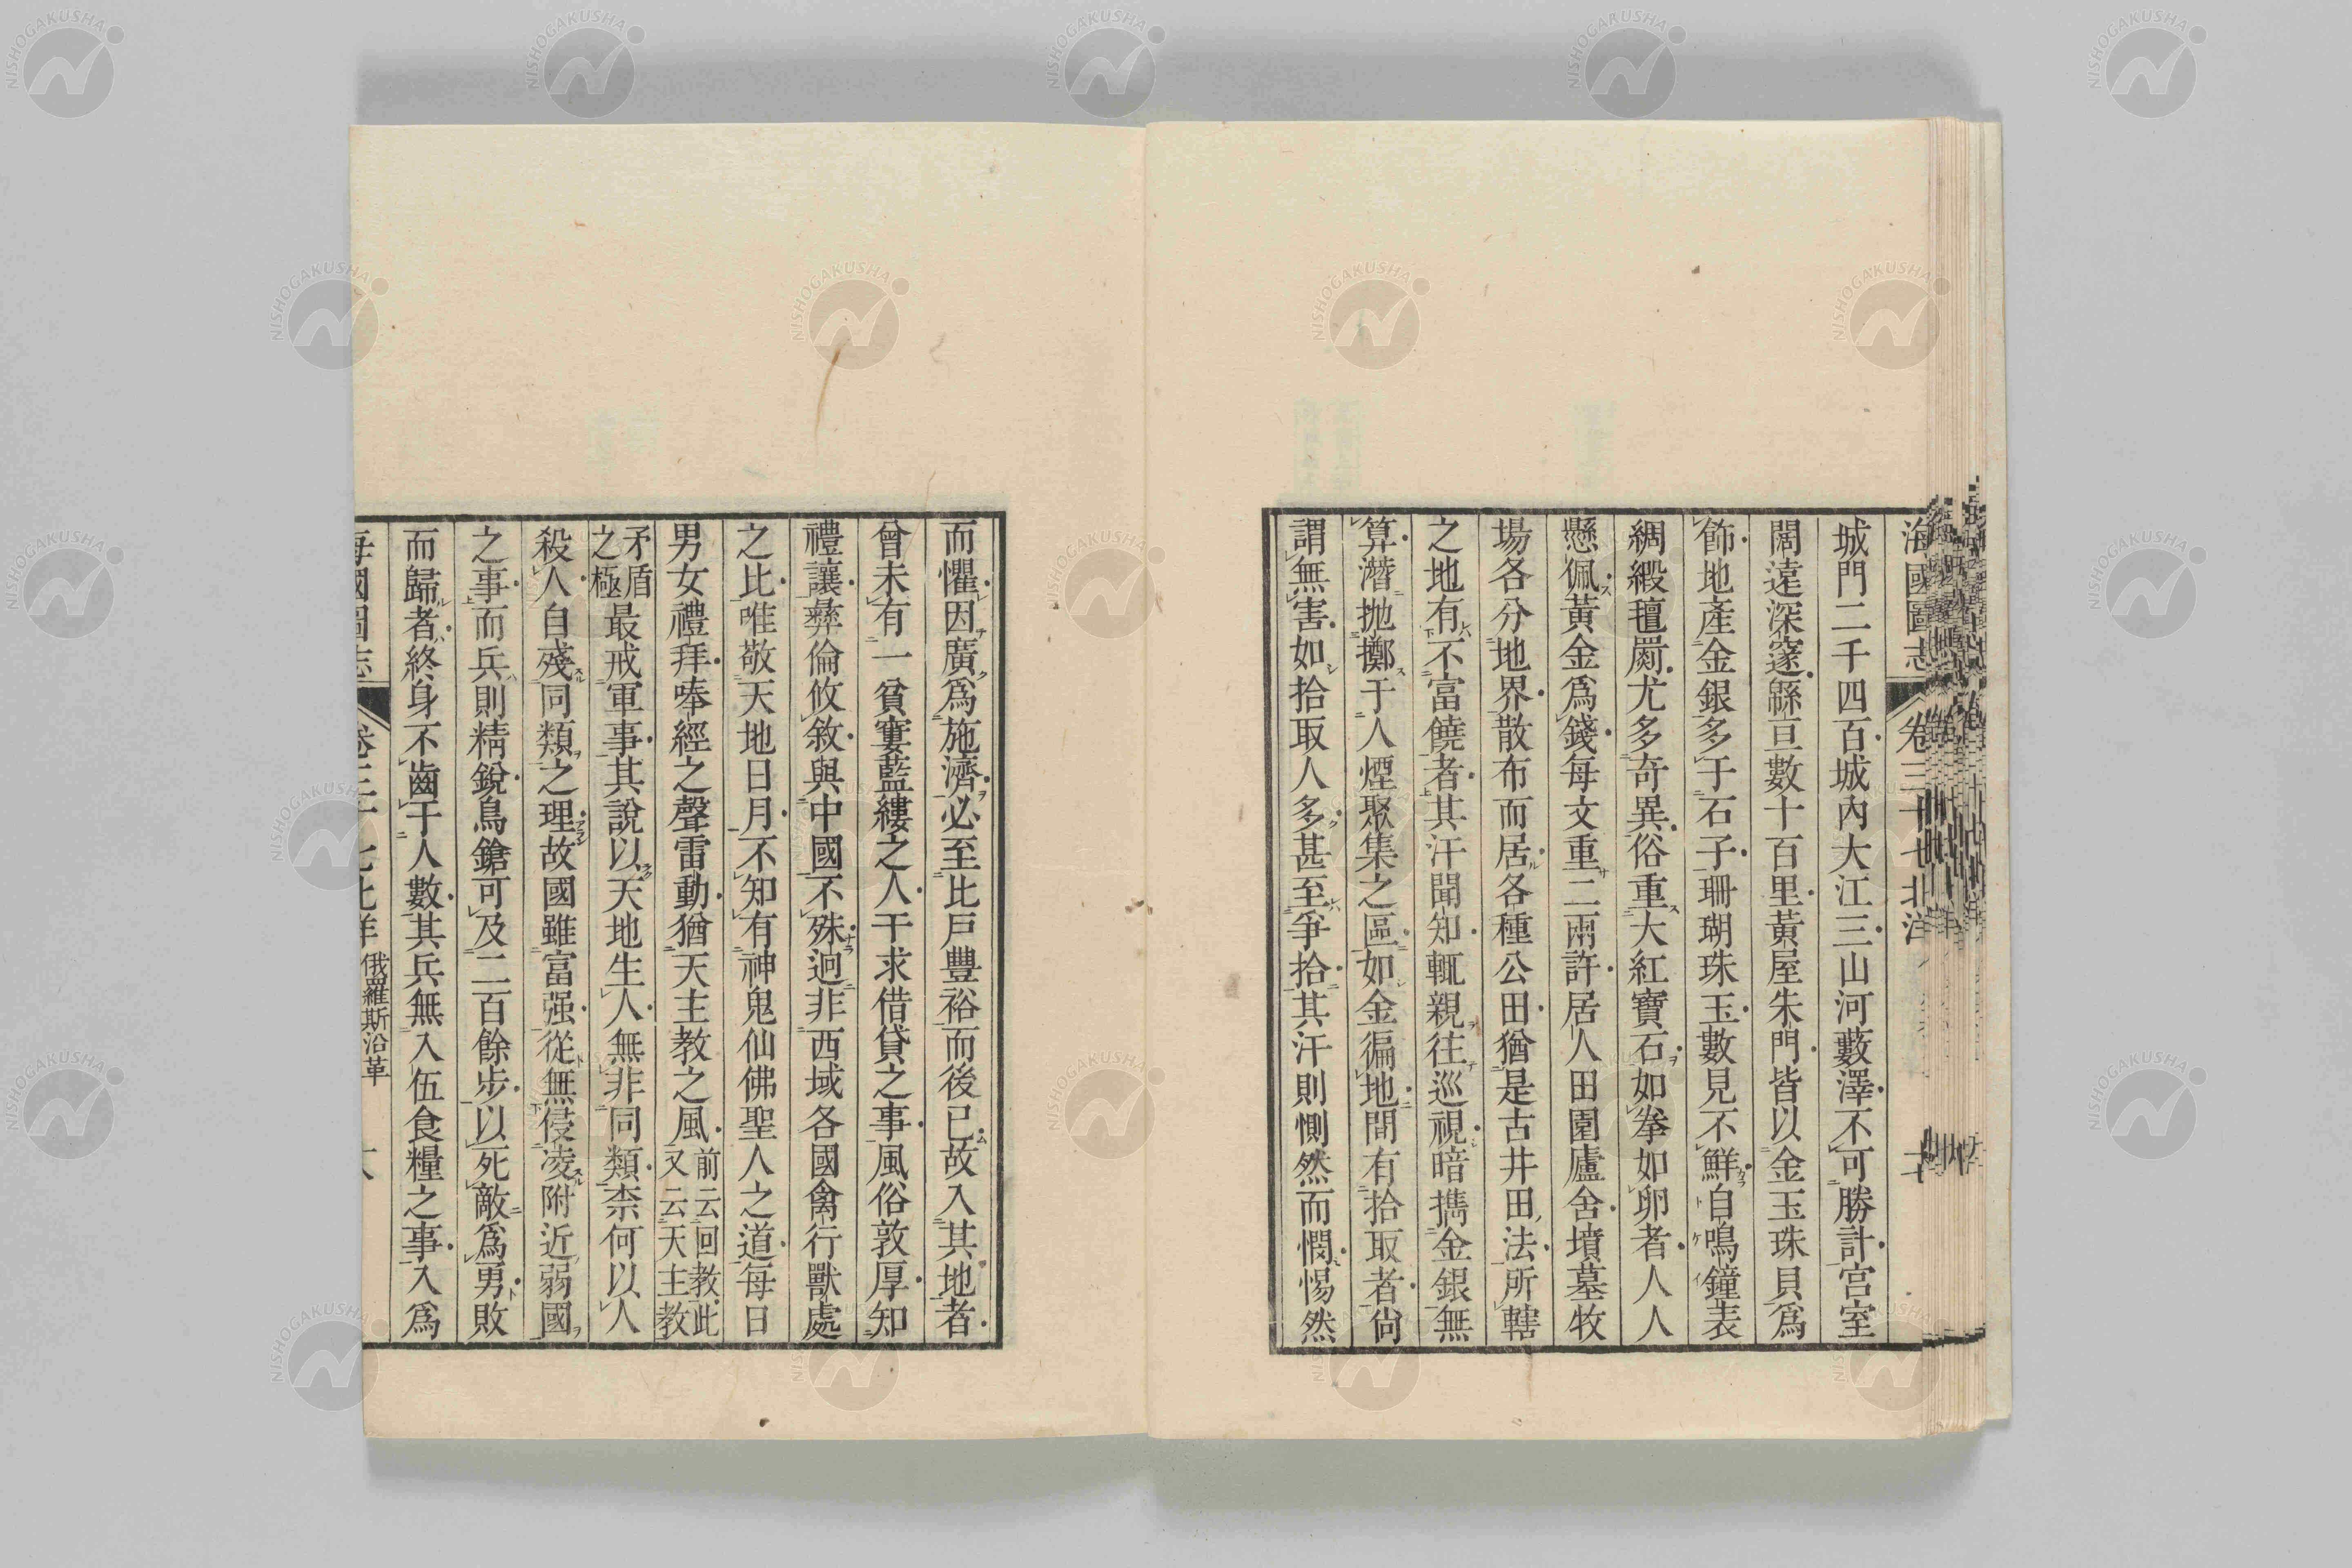 海國圖志 卷三十七北洋
城門二千四百城內大江三山河藪澤不可勝計宮室
闊遠深窓緜亘數十百里黃屋朱門皆以金玉珠貝爲
飾地產金銀多于石子珊瑚珠玉數見不鮮自鳴鐘表
綢緞氊罽尤多奇異俗重大紅寶石如拳如卵者人人
懸佩黃金爲錢每文重二兩許居人田園廬舍墳墓牧
場各分地界散布而居各種公田猶是古井田法所轄
之地有不富饒者其汗聞知輒親往巡視暗攜金銀無
算潛拋擲于人煙聚集之區如金徧地間有拾取者尙
謂無害如拾取人多甚至爭拾其汗則惻然而憫惕然
而懼因廣爲施濟必至比戶豐裕而後已故入其地者
曾未有一貧窶藍縷之人干求借貸之事風俗敦厚知
禮讓彝倫攸敘與中國不殊迥非西域各國禽行獸處
之比唯敬天地日月不知有神鬼仙佛聖人之道每日
男女禮拜唪經之聲雷動猶天主教之風前云回教此
又云天主教
矛盾
之極最戒軍事其說以天地生人無非同類柰何以人
殺人自殘同類之理故國雖富强從無侵凌附近弱國
之事而兵則精銳鳥鎗可及二百餘步以死敵爲勇敗
而歸者終身不齒于人數其兵無入伍食糧之事入爲
海國圖志 卷三十七北洋 俄羅斯沿革